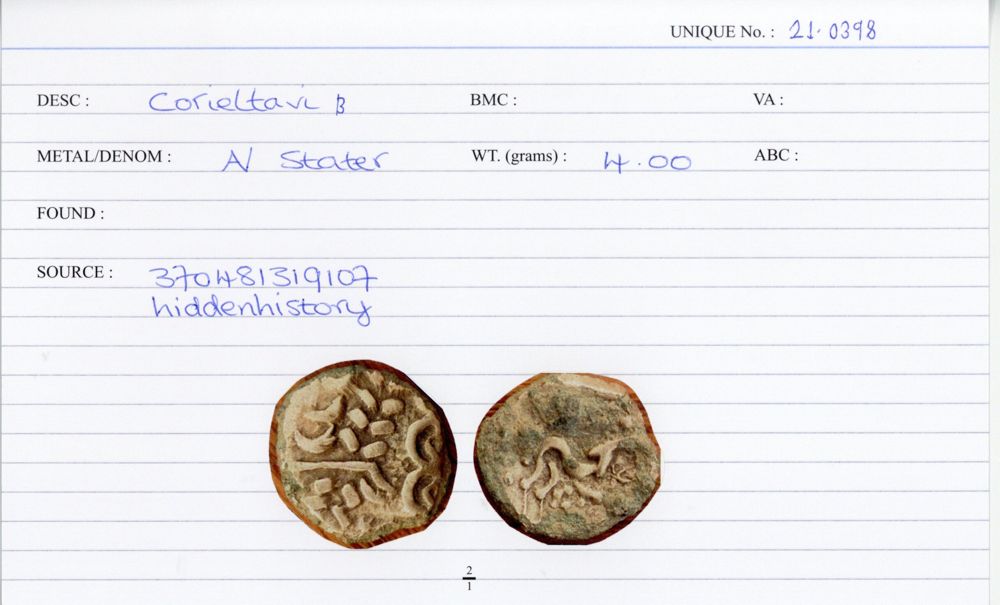 UNIQUE No. : 21.0398
DESC : Corieltavi B BMC : VA :
METAL/DENOM : A/ Stater WT. (grams) : 4.00 ABC :
FOUND :
SOURCE : 370481319107
hiddenhistory
2
1